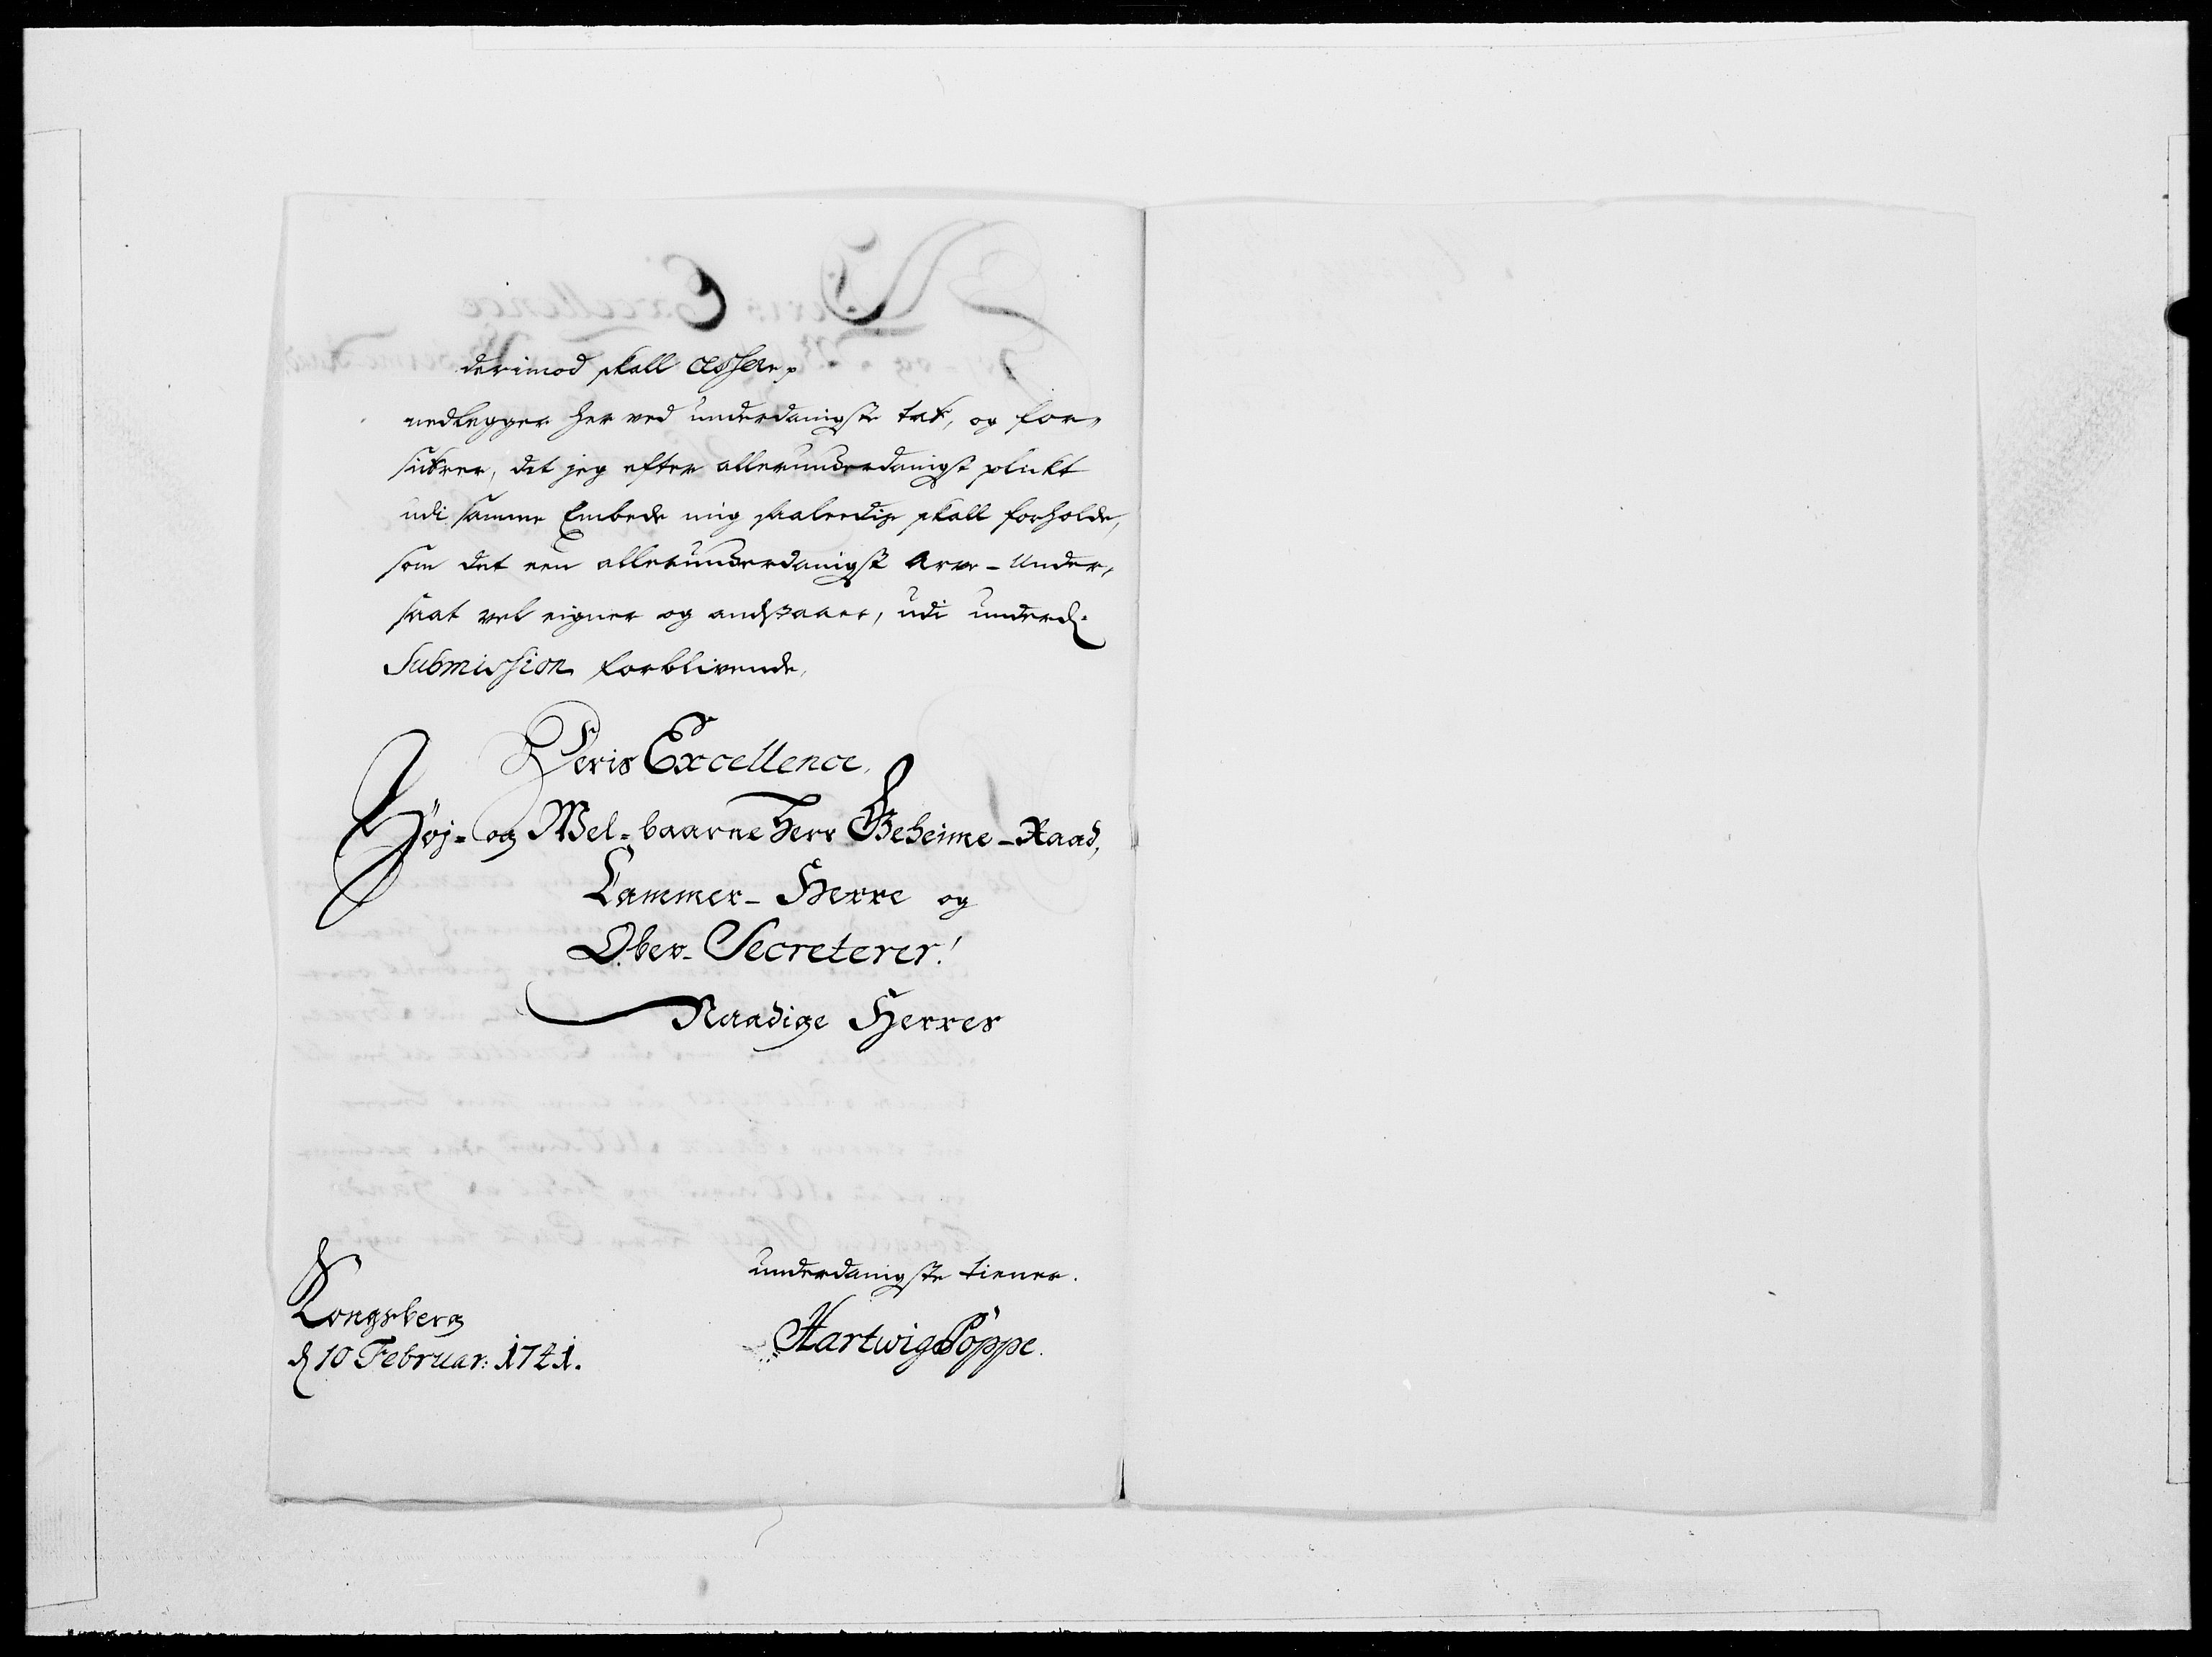 derimod skall
nedlegger her ved underdanigste tak, og for-
sikrer, det jeg efter allerunderdanigst plickt
udi samme Embede mig saaledig skall forholde,
som det een allerunderdanigst Arve-Under-
saat vel eigner og anstaaer, udi underd:
Submission forblivende,
Deris Excellence,
Høj- og Wel-baarne Herr Geheime-Raad,
Cammer-Herre og
Ober-Secreterer!
Naadige Herres
underdanigste tiener.
Hartwig Pöppe.
Kongsberg
d 10 Februar: 1741.